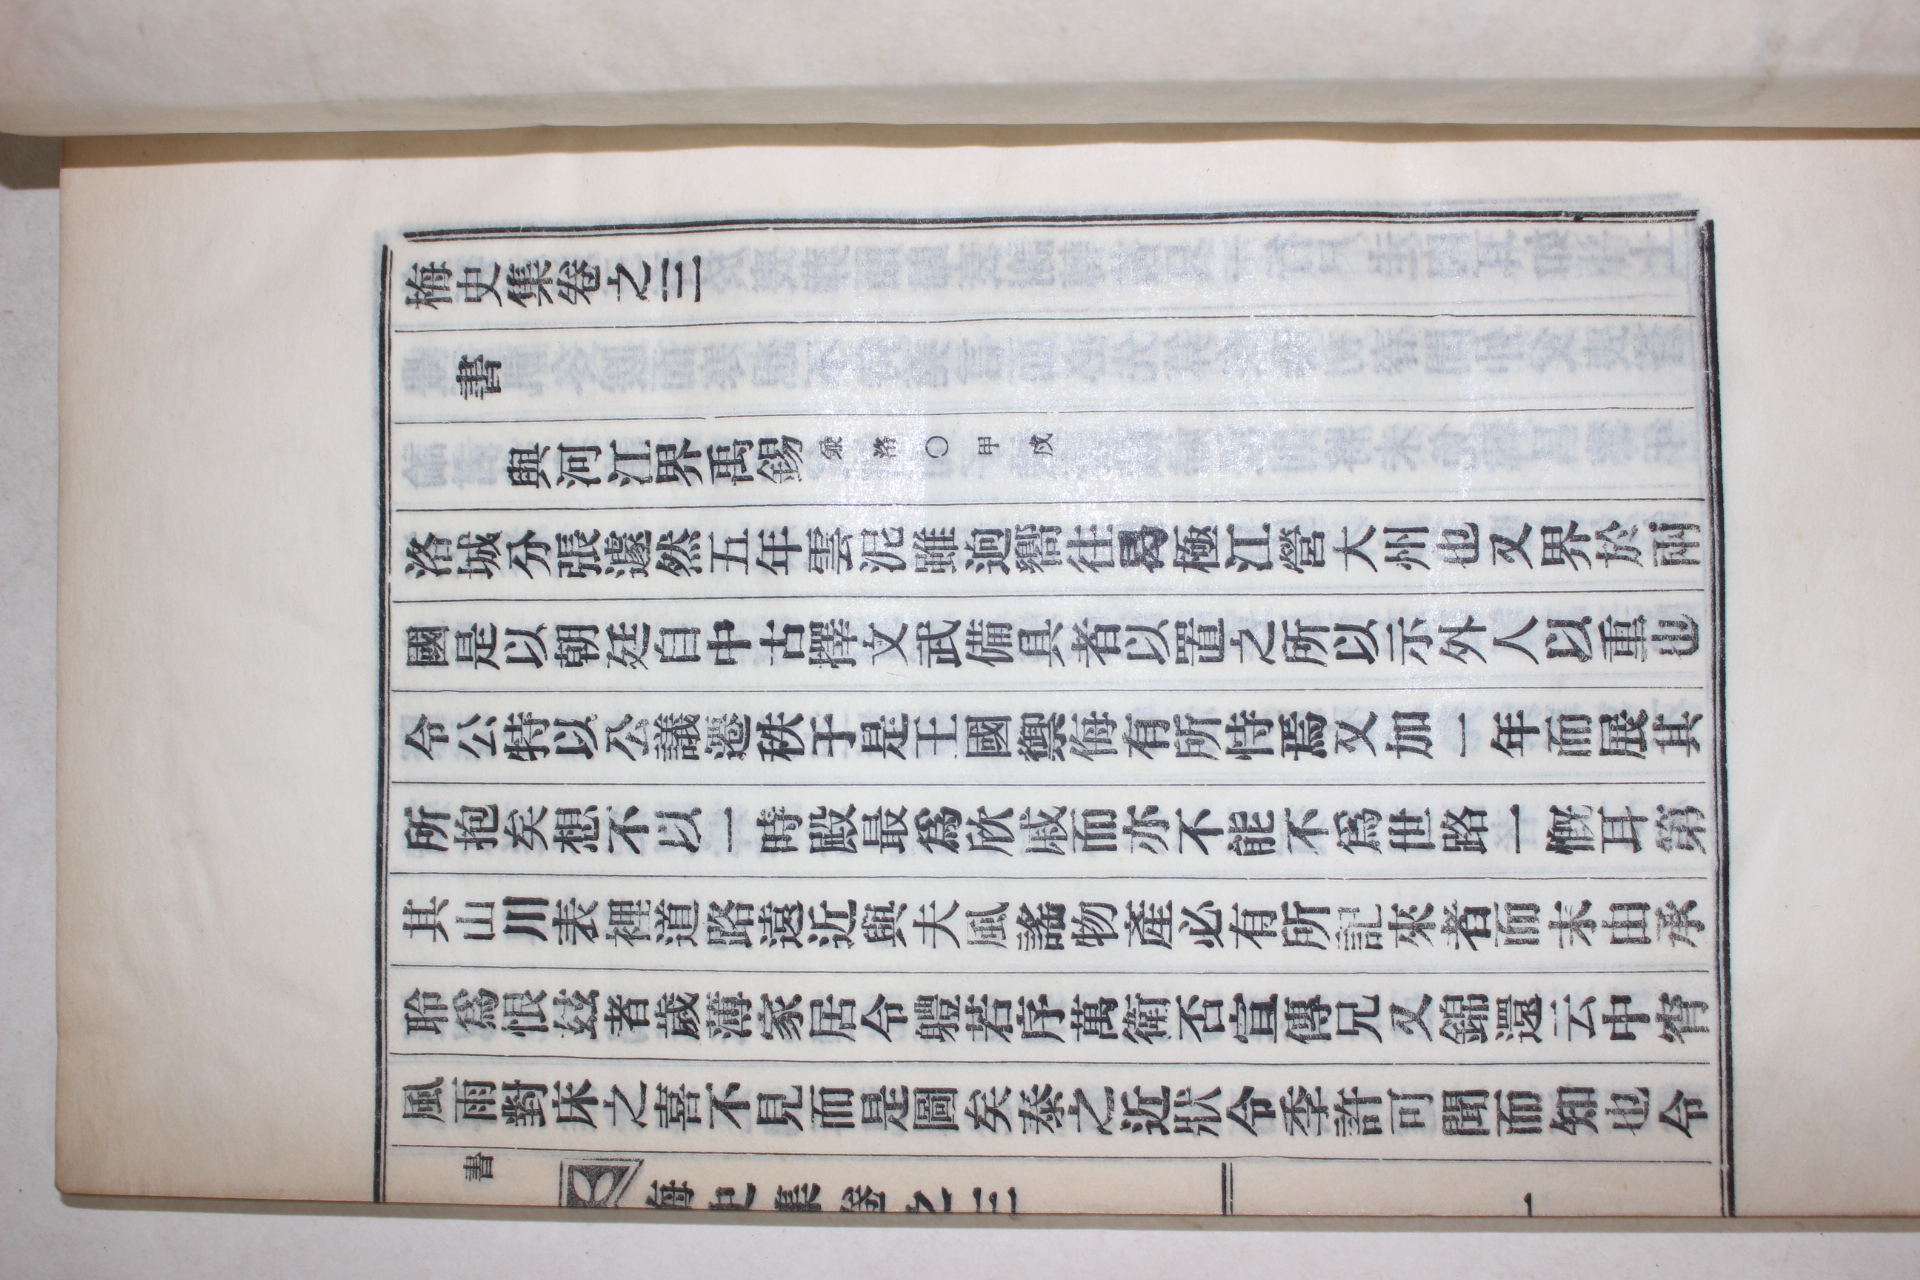 梅史集卷之三
書
與河江界禹錫 秉洛〇甲戌
洛城分張遽然五年雲泥雖逈嚮往曷極江營大州也又界於兩
國是以朝廷自中古擇文武備具者以置之所以示外人以重也
令公特以公議遷秩于是王國禦侮有所恃焉又加一年而展其
所抱矣想不以一時殿最爲欣戚而亦不能不爲世路一慨耳第
其山川表裡道路遠近與夫風謠物產必有所記來者而未由承
聆爲恨玆者歲薄家居令體若序萬衛否宣傳兄又錦還云中宵
風雨對床之喜不見而是圖矣泰之近狀令季許可聞而知也令
書
梅史集卷之三
一